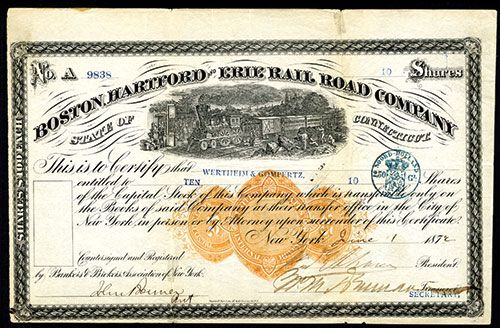 No. A 9838 10 Shares
BOSTON HARTFORD AND ERIE RAIL ROAD COMPANY
STATE OF CONNECTICUT.
This is to Certify that WERTHEIM & GOMPERTZ,
entitled to TEN 10 Shares
of the Capital Stock of this Company, which is transferable only on
the Books of said Company at their transfer office in the City of
New York, in person or by Attorney upon surrender of this Certificate.
New York June 1 1872
Countersigned and Registered President.
by Bankers & Brokers Association of New York.
SECRETARY.